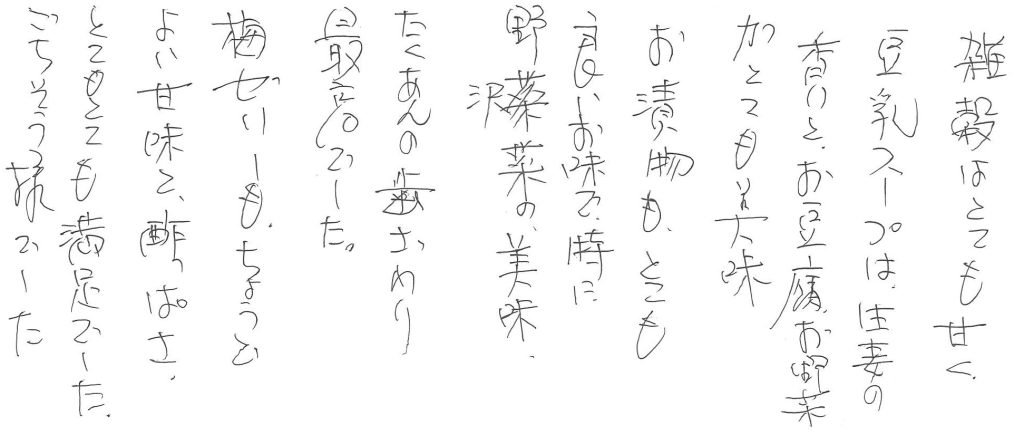 雑穀はとても甘く、
豆乳スープは、生姜の
香りと、お豆腐、お野菜
がとても美味
お漬物も、とても
良いお味で、時に
野沢菜の、美味、
たくあんの歯ざわり
最高でした。
梅ゼリーも、ちょうど
よい甘味と、酢っぱさ、
とてもとても満足でした。
ごちそう様でした